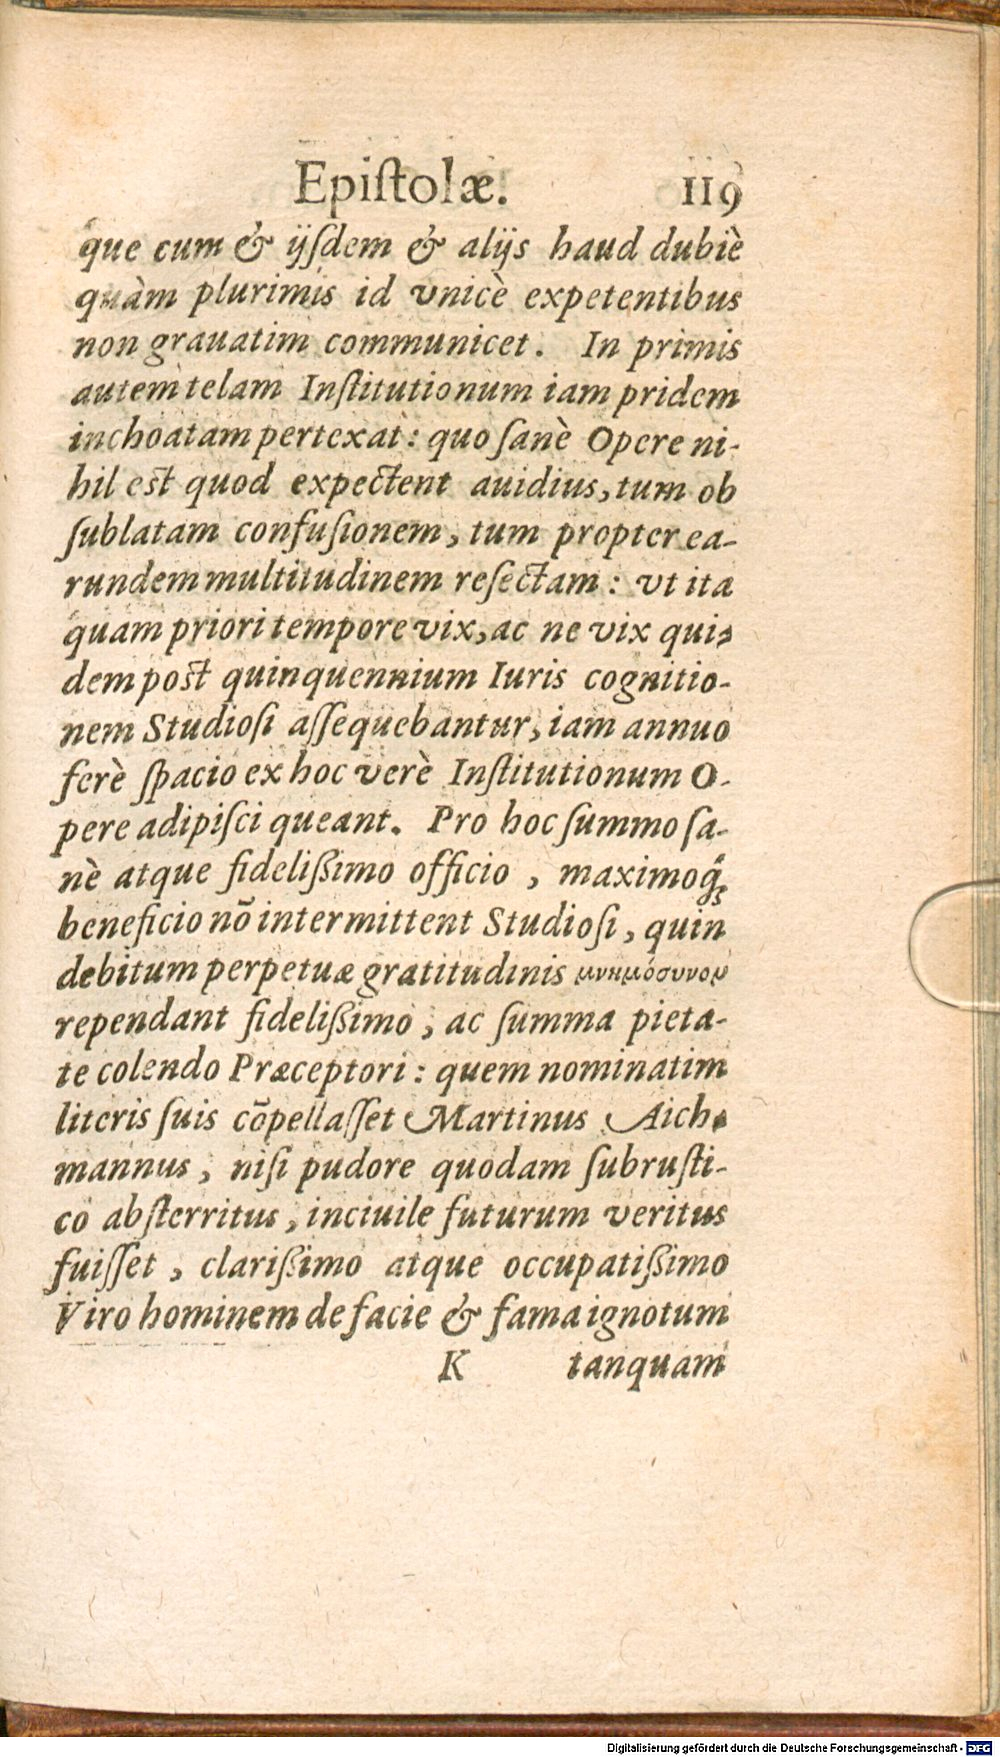 Epiſtolæ. 119
́que cum & ijſdem & alijs haud dubiè
quàm plurimis id vnicè expetentibus
non grauatim communicet. In primis
autem telam Inſtitutionum iam pridem
inchoatam pertexat: quo ſanè Opere ni-
hil est quod expectent auidius, tum ob
ſublatam confuſionem, tum propter ea-
rundem multitudinem reſectam: vt ita
quam priori tempore vix, ac ne vix qui-
dem post quinquennium Iuris cognitio-
nem Studioſi aſſequebantur, iam annuo
ferè ſpacio ex hoc verè Inſtitutionum O-
pere adipiſci queant. Pro hoc ſummo ſa-
nè atque fideliſsimo officio, maximoq́;
beneficio nō intermittent Studioſi, quin
debitum perpetuæ gratitudinis μνημόσυνον
rependant fideliſsimo, ac ſumma pieta-
te colendo Præceptori: quem nominatim
literis ſuis cōpellaſſet Martinus Aich-
mannus, niſi pudore quodam ſubruſti-
co abſterritus, inciuile futurum veritus
fuiſſet, clariſsimo atque occupatiſsimo
Viro hominem de facie & fama ignotum
K tanquam
Digitalisierung gefördert durch die Deutsche Forschungsgemeinschaft - DFG